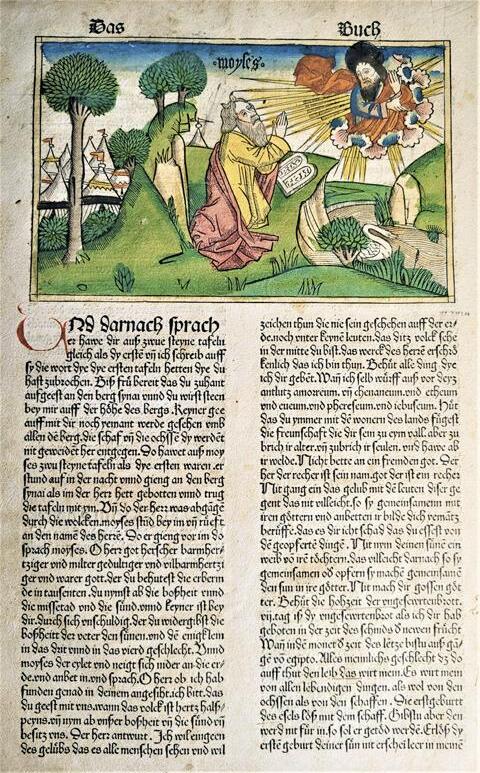 Das Buch
moyses
Und darnach sprach
er hawe dir auß zwue steyne tafeln
gleich als dy erstē vñ ich schreib auff
sy die wort dye dye ersten tafeln hetten dye du
hast zubrochen. Biß frü bereit das du zuhant
aufgeest an den berg synai vnnd du wirst steen
bey mir auff der höhe des bergs. Keyner gee
auff mit dir noch yemant werde gesehen vmb
allen dē berg. die schaf vñ die ochssē dy werdent
nit geweidet her entgegen. So hawet auß moy
ses zwu steyne tafeln als dye ersten waren. er
stund auf in der nacht vnnd gieng an den berg
synai als im der herr hett gebotten vnnd trug
die tafeln mit ym. Vñ do der herr was abgāgē
durch die wolcken. moyses stūd bey im vñ rüeft
an den namē des herrē. So er gieng vor im do
sprach moyses. O herr got herscher barmher
tziger vnd milter gedultiger vnd vil barmhertzi
ger vnd warer gott. der du behütest die erberm
de in tausenten. du nymst ab die boßheit vnnd
die missetad vnd die sünd. vnnd keyner ist bey
dir. durch sich vnschuldig. der du widergibst die
boßheitt der veter den sünen. vnd dē enigklein
in das drit vnnd in das vierd geschlecht. Vnnd
moyses der eylet vnd neigt sich nider an die er
de. vnd anbet in. vnd sprach. O herr ob ich hab
funden genad in deinem angesiht. ich bitt. das
du geest mit vns. wann das volck ist hertz halß
peyns. vñ nym ab vnser boßheit vñ die sünd vñ
besitz vns. Der herr antwurt. Ich wil eingeen
des gelübs das es alle menschen sehen vnd wil
zeichen thun die nie sein geschehen auff der er
de. noch vnter keynē leuten. das ditz volck sehe
in der mitte du bist. das werck des herrē erschrö
ckenlich das ich bin thun. Behüt alle ding dye
ich dir gebeüt. Wañ ich selb würff auß vor deym
antlutz amorreum. vñ chenaneum. vnd etheum
vnd eueum. vnd phereseum. vnd iebuseum. Hüt
das du ymmer mit dē wonern des lands fügest
die freunschaft die dir sein zu eym vall. aber zu
brich ir alter. vñ zubrich ir seulen. vnd hawe ab
ir welde. Nicht bette an ein fremden got. Der
herr der recher ist sein nam. got der ist ein recher
Nit gang ein das gelub mit dē leuten diser ge
gent das nit villeicht. so sy gemeinsamen mit
iren göttern vnd anbetten ir bilde dich yemātz
berüffe. das es dir icht schad das du essest von
dē geopfertē dingē. Nit nym deinen sünē ein
weib vō irē töchtern. das villeicht darnach so sy
gemeinsamen od opfern sy machē gemeinsamē
den sun in ire götter. Nit mach dir gossen göt
ter. Behüt die hohzeit der vngesewrten brott.
vij. tag iß dy vngesewrten brot als ich dir hab
geboten in der zeit des monds d newen frücht
Wañ indē monet d zeit des lētze bistu auß gā
gē vō egipto. Alles menlichs geschlecht dz do
auff thut den leib das wirt mein. Es wirt mein
von allen lebendigen dingen. als wol von den
ochssen als von den schaffen. Die erst geburt
des esels löß mit dem schaff. Gibstu aber den
werd nit für in. so sol er getöd werdē. Erlöß dy
erstē geburt deiner sün nit erscheī leer in meinē